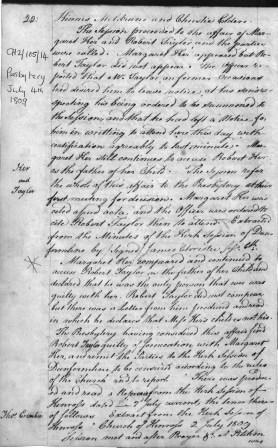 20.
CH2/105/14
Presbytery
July 4th
1809
Her
and
Taylor
Thos. McIlvrine and Christie Elders.
The Session proceeded to the affair of Mar-
garet Her and Robert Taylor and the parties
were called. Margaret Her appeared but Ro-
bert Taylor did not appear. The Officer re-
ported that Mr Taylor on former occasions
had desired him to leave notice, at his
specting his being ordered to be summoned to
the Session, and that he had left a Notice for
him in writting to attend here this day with
certification agreeably to last minute. Mar-
garet Her still continues to accuse Robert Her
as the father of her Child. The Session refer
the whole of this affair to the Presbytery at their
first meeting for decision. Margaret Her was
cited apud acta, and the Officer was ordered to
cite Robert Taylor then to attend. Extracted
from the Minutes of the Kirk Session of Dun-
fermline by Signed James
Margaret Her compeared and continued to
accuse Robert Taylor as the father of her Child and
declared that he was the only person that was ever
guilty with her. Robert Taylor did not compear
but there was a letter from him produced & read
in which he declares that
The Presbytery having considered this affair find
Robert Taylor guilty of fornication with Margaret
Her, and remit the Parties to the Kirk Session of
Dunfermline to be censured according to the rules
of the Church and to report. There was produ-
ced and read a Reference from the Kirk Session of
Kinross dated 2d July current the tenor there-
of follows Extract from the Kirk Session of
Kinross Church of Kinross 2 July 1809
Session met and after Prayer